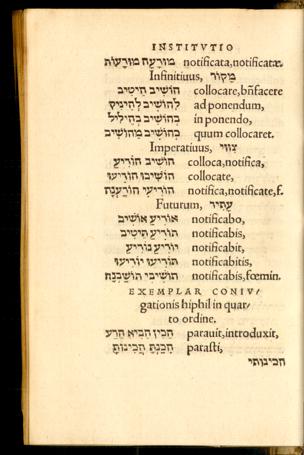 INSTITVTIO
מוּדָעָה מוּדָעוֹת notificata, notificatæ.
Infinitiuus, מָקוֹר
הוֹשִׁיב הֵיטִיב collocare, bñfacere
לְהוֹשִׁיב לְהֵינִיק ad ponendum,
בְּהוֹשִׁיב בְּהֵילִיל in ponendo,
כְּהוֹשִׁיב מֵהוֹשִׁיב quum collocaret.
Imperatiuus, צִוּוּי
הוֹשִׁיב הוֹדִיעַ colloca, notifica,
הוֹשִׁיבוּ הוֹדִיעוּ collocate,
הוֹדִיעִי הוֹדַעְנָה notifica, notificate, f.
Futurum, עָתִיד
אוֹדִיעַ אוֹשִׁיב notificabo,
תוֹדִיעַ תֵּיטִיב notificabis,
יוֹדִיעַ נוֹדִיעַ notificabit,
תוֹדִיעוּ יוֹדִיעוּ notificabitis,
תוֹשִׁיבִי תוֹשֵׁבְנָה notificabis, fœmin.
EXEMPLAR CONIV/
gationis hiphil in quar/
to ordine.
הֵכִין הֵבִיא הֵרַע parauit, introduxit,
הֲכִנֹתָ הֲבִינוֹתָ parasti,
הכינותי